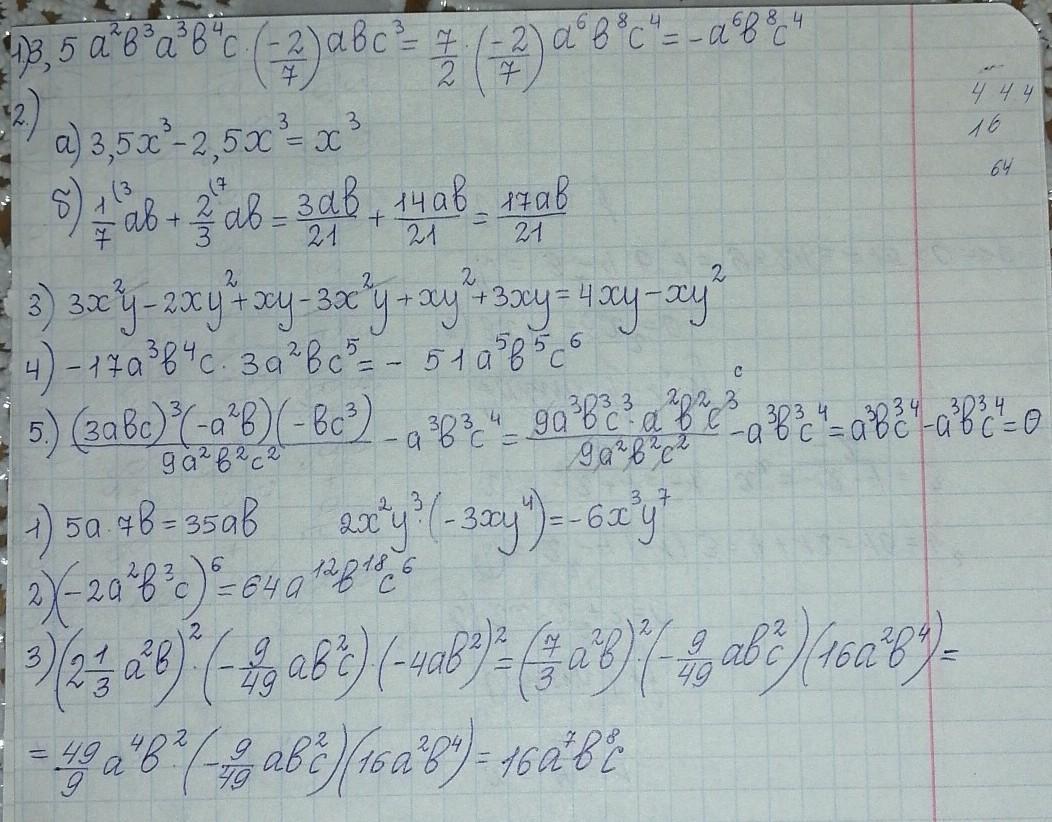 1) 3,5 a²b³a³b⁴c · (-2/7) abc³ = 7/2 · (-2/7) a⁶b⁸c⁴ = -a⁶b⁸c⁴
4 4 4
2.)
16
а) 3,5x³ - 2,5x³ = x³
64
б) 1/7⁽³ ab + 2/3⁽⁷ ab = 3ab/21 + 14ab/21 = 17ab/21
3) 3x²y - 2xy² + xy - 3x²y + xy² + 3xy = 4xy - xy²
4) -17a³b⁴c · 3a²bc⁵ = - 51a⁵b⁵c⁶
5.) (3abc)³(-a²b)(-bc³)/9a²b²c² - a³b³c⁴ = 9a³b³c³ · a²b²c³/9a²b²c² - a³b³c⁴ = a³b³c⁴ - a³b³c⁴ = 0
c
1) 5a · 7b = 35ab 2x²y³ · (-3xy⁴) = -6x³y⁷
2) (-2a²b³c)⁶ = 64a¹²b¹⁸c⁶
3) (2 1/3 a²b)² · (-9/49 ab²c) · (-4ab²)² = (7/3 a²b)² · (-9/49 ab²c)(16a²b⁴) =
= 49/9 a⁴b² · (-9/49 ab²c)(16a²b⁴) = 16a⁷b⁸c